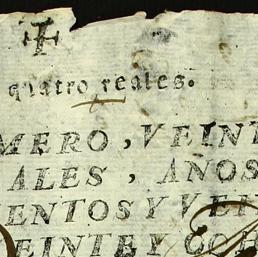 quatro reales.
MERO, VEINT
ALES, AÑOS
ENTOS Y VEI
EINTE Y OCH